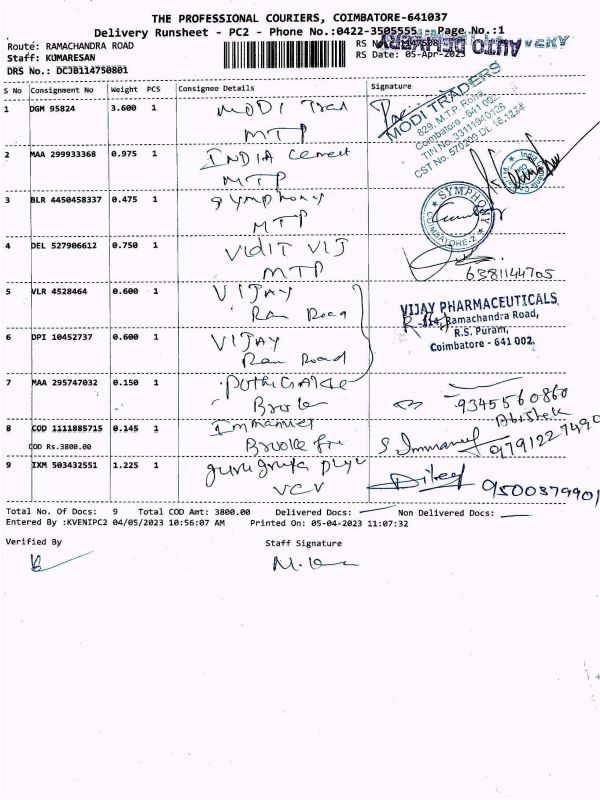 THE PROFESSIONAL COURIERS, COIMBATORE-641037
Delivery Runsheet - PC2 - Phone No.:0422-3505555 Page No.:1
Route: RAMACHANDRA ROAD
Staff: KUMARESAN
DRS No.: DCJB114750801
RS No
AUTO DELIVERY
RS Date: 05-Apr-2023
S No Consignment No Weight PCS Consignee Details Signature
1 DGM 95824 3.600 1 MODI Trad
MTP
MODI TRADERS
829, M.T.P. Road,
Coimbatore - 641 00
TIN No. 33111940
CST No. 570209 Dt.
2 MAA 299933368 0.975 1 INDIA Cement
MTP
3 BLR 4450458337 0.475 1 Symphony
MTP
SYMPHONY
COIMBATORE-2
4 DEL 527906612 0.750 1 VIDIT VIJ
MTP
6381144705
5 VLR 4528464 0.600 1 VIJAY
Ram Road
VIJAY PHARMACEUTICALS
Ramachandra Road,
R.S. Puram,
Coimbatore - 641 002.
6 DPI 10452737 0.600 1 VIJAY
Ram Road
7 MAA 295747032 0.150 1
9345560860
Abishek
8 COD 1111885715 0.145 1 Immanuel
COD Rs.3800.00
Brooke
S Immanuel 9791227490
9 IXM 503432551 1.225 1 guru
VCV
Dileep 9500379901
Total No. Of Docs: 9 Total COD Amt: 3800.00 Delivered Docs: Non Delivered Docs:
Entered By :KVENIPC2 04/05/2023 10:56:07 AM Printed On: 05-04-2023 11:07:32
Verified By Staff Signature